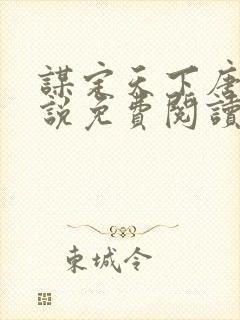 謀定天下唐
說免費閱讀
東城令